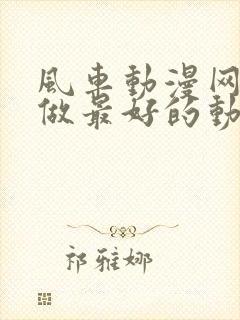 風車動漫网
做最好的動
祁雅娜